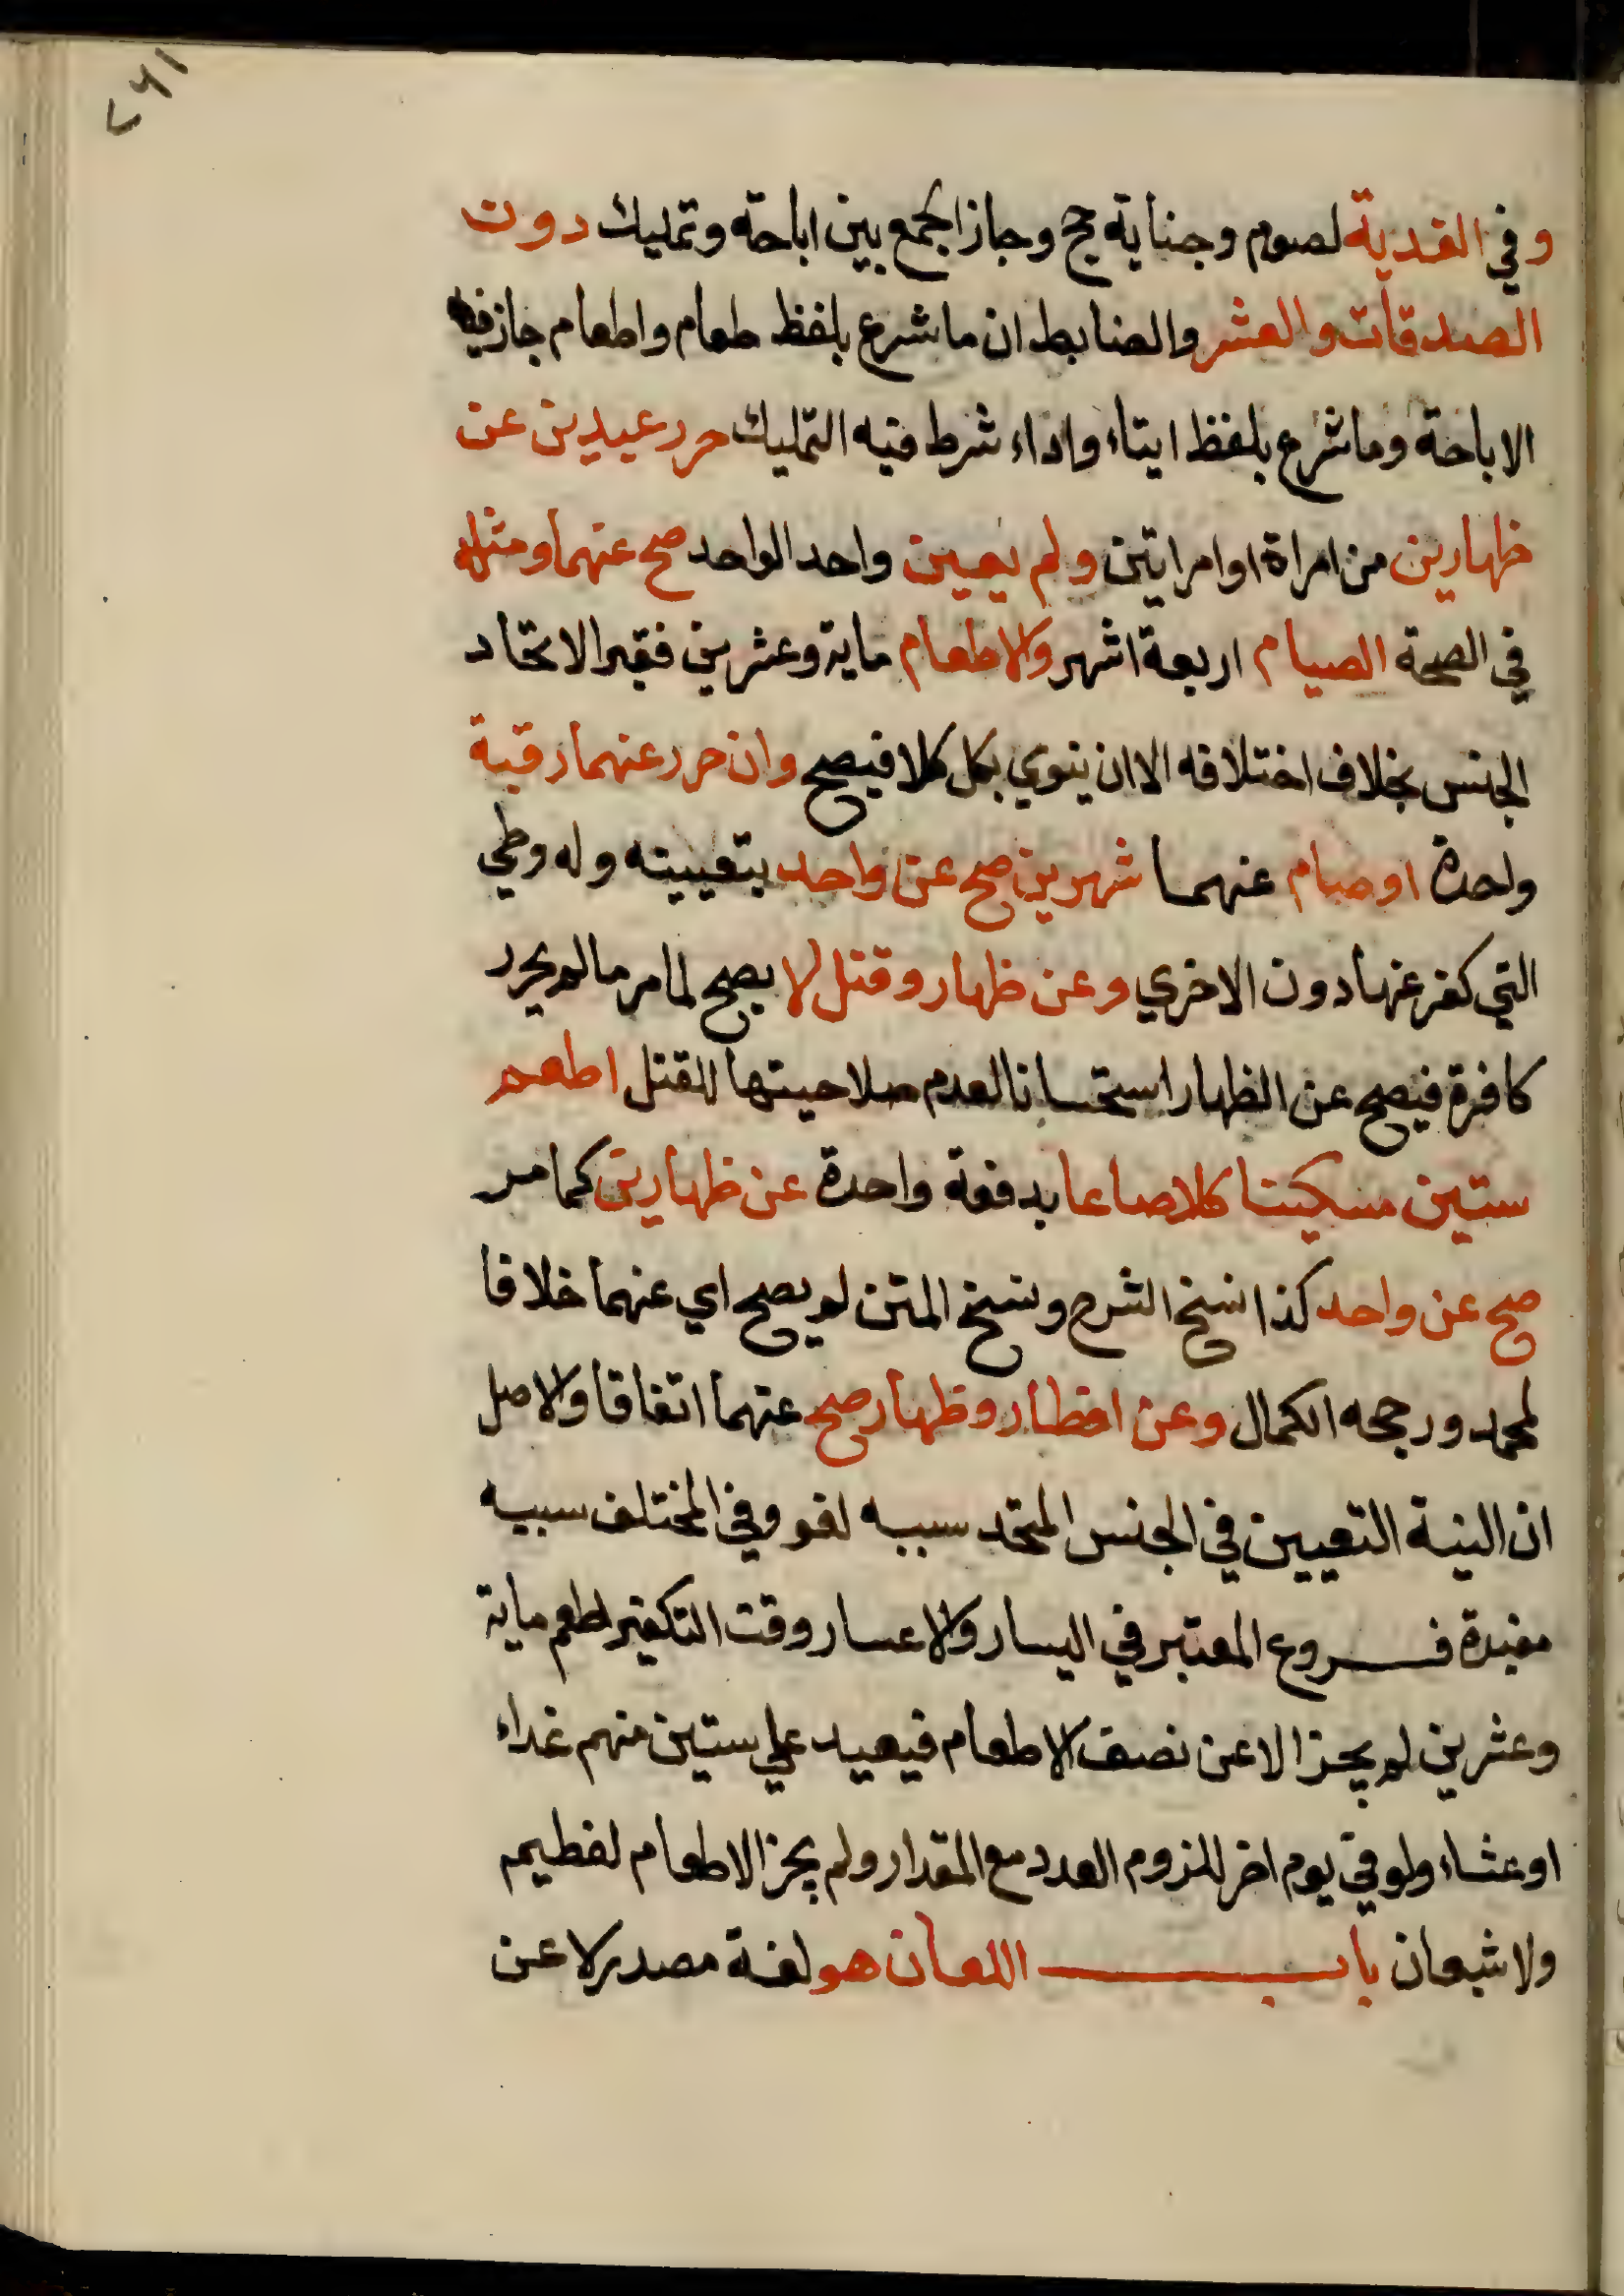 ٢٦١
وفي الفدية لصوم وجناية حج وجاز الجمع بين اباحة وتمليك دون
الصدقات والعشر والضابط ان ما شرع بلفظ طعام واطعام جاز فيه
الاباحة وما شرع بلفظ ايتاء واداء شرط فيه التمليك حرر عبدين عن
ظهارين من امراة او امراتين ولم يعين واحد الواحد صح عنهما ومثله
في الصحة الصيام اربعة اشهر والاطعام ماية وعشرين فقيرا لاتحاد
الجنس بخلاف اختلافه الا ان ينوي بكل كلا فيصح وان حرر عنهما رقبة
واحدة او صام عنهما شهرين صح عن واحد بتعيينه وله وطي
التي كفر عنها دون الاخري وعن ظهار وقتل لا يصح لما مر ما لم يحرر
كافرة فيصح عن الظهار استحسانا لعدم صلاحيتها للقتل اطعم
ستين مسكينا كلا صاعا بدفعة واحدة عن ظهارين كما مر
صح عن واحد كذا نسخ الشرح ونسخ المتن لم يصح اي عنهما خلافا
لمحمد ورجحه الكمال وعن افطار وظهار صح عنهما اتفاقا والاصل
ان النية التعيين في الجنس المتحد سببه لغو وفي المختلف سببه
مفيدة فروع المعتبر في اليسار والاعسار وقت التكفير اطعم ماية
وعشرين لم يجز الا عن نصف الاطعام فيعيد علي ستين منهم غداء
او عشاء ولو في يوم اخر للزوم العدد مع المقدار ولم يجز الاطعام لفطيم
ولا شبعان باب اللعان هو لغة مصدر لاعن